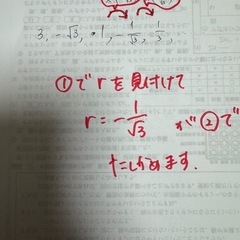 3, -√3, 1, -1/√3, 1/3,
①でrを見付けて
r = -1/√3 が②で
たしかめます.